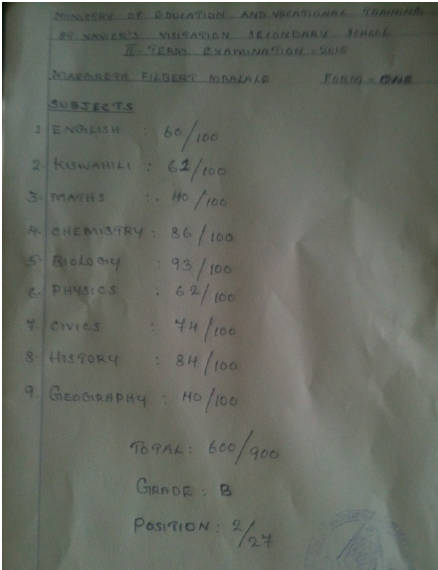 MINISTRY OF EDUCATION AND VOCATIONAL TRAINING
ST XAVIER'S VISITATION SECONDARY SCHOOL
II - TERM EXAMINATION - 2015
MARGRETH FILBERT MBALALE FORM = ONE
SUBJECTS
1. ENGLISH : 60/100
2. KISWAHILI : 61/100
3. MATHS : 40/100
4. CHEMISTRY : 86/100
5. BIOLOGY : 93/100
6. PHYSICS : 62/100
7. CIVICS : 74/100
8. HISTORY : 84/100
9. GEOGRAPHY : 40/100
TOTAL : 600/900
GRADE : B
POSITION : 2/27